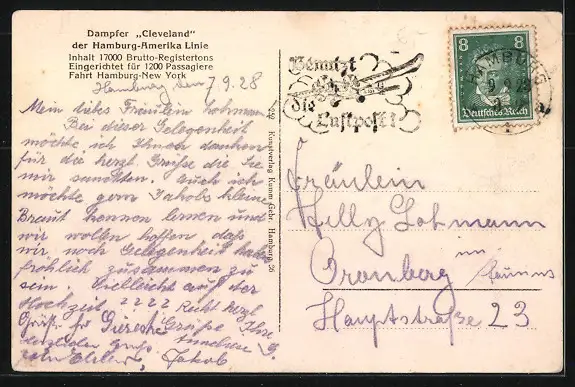 Dampfer „Cleveland"
der Hamburg-Amerika Linie
Inhalt 17000 Brutto-Registertons
Eingerichtet für 1200 Passagiere
Fahrt Hamburg-New York
Hamburg den 7.9.28
Mein liebes Fräulein Lohmann
Bei dieser Gelegenheit
möchte ich Ihnen danken
für die herzl. Grüße die Sie
mir sandten. Auch ich
möchte gern Jakobs kleine
Braut kennen lernen und
wir wollen hoffen daß
wir noch Gelegenheit haben
fröhlich zusammen zu
sein. Vielleicht auf der
Hochzeit ???? Recht herzl
Grüße Ihre
Jakob
Kunstverlag Kumm Gebr. Hamburg 26
Benutzt
die
Luftpost!
8 8
Deutsches Reich
HAMBURG
Fräulein
Willy Lohmann
Cronberg im Taunus
Hauptstraße 23